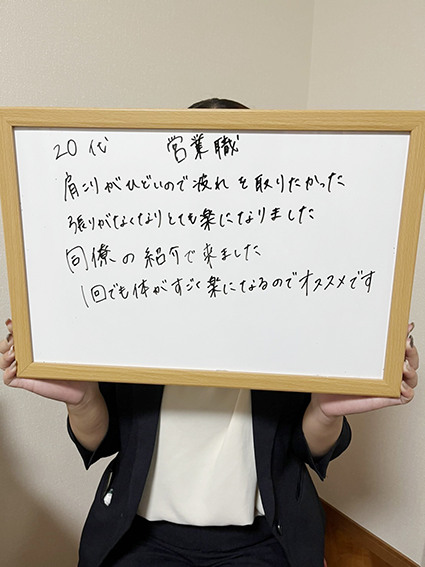 20代 営業職
肩こりがひどいので疲れを取りたかった
張りがなくなりとても楽になりました
同僚の紹介で来ました
1回でも体がすごく楽になるのでオススメです